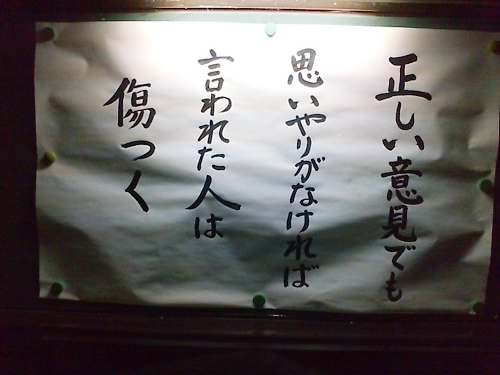 正しい意見でも
思いやりがなければ
言われた人は
傷つく